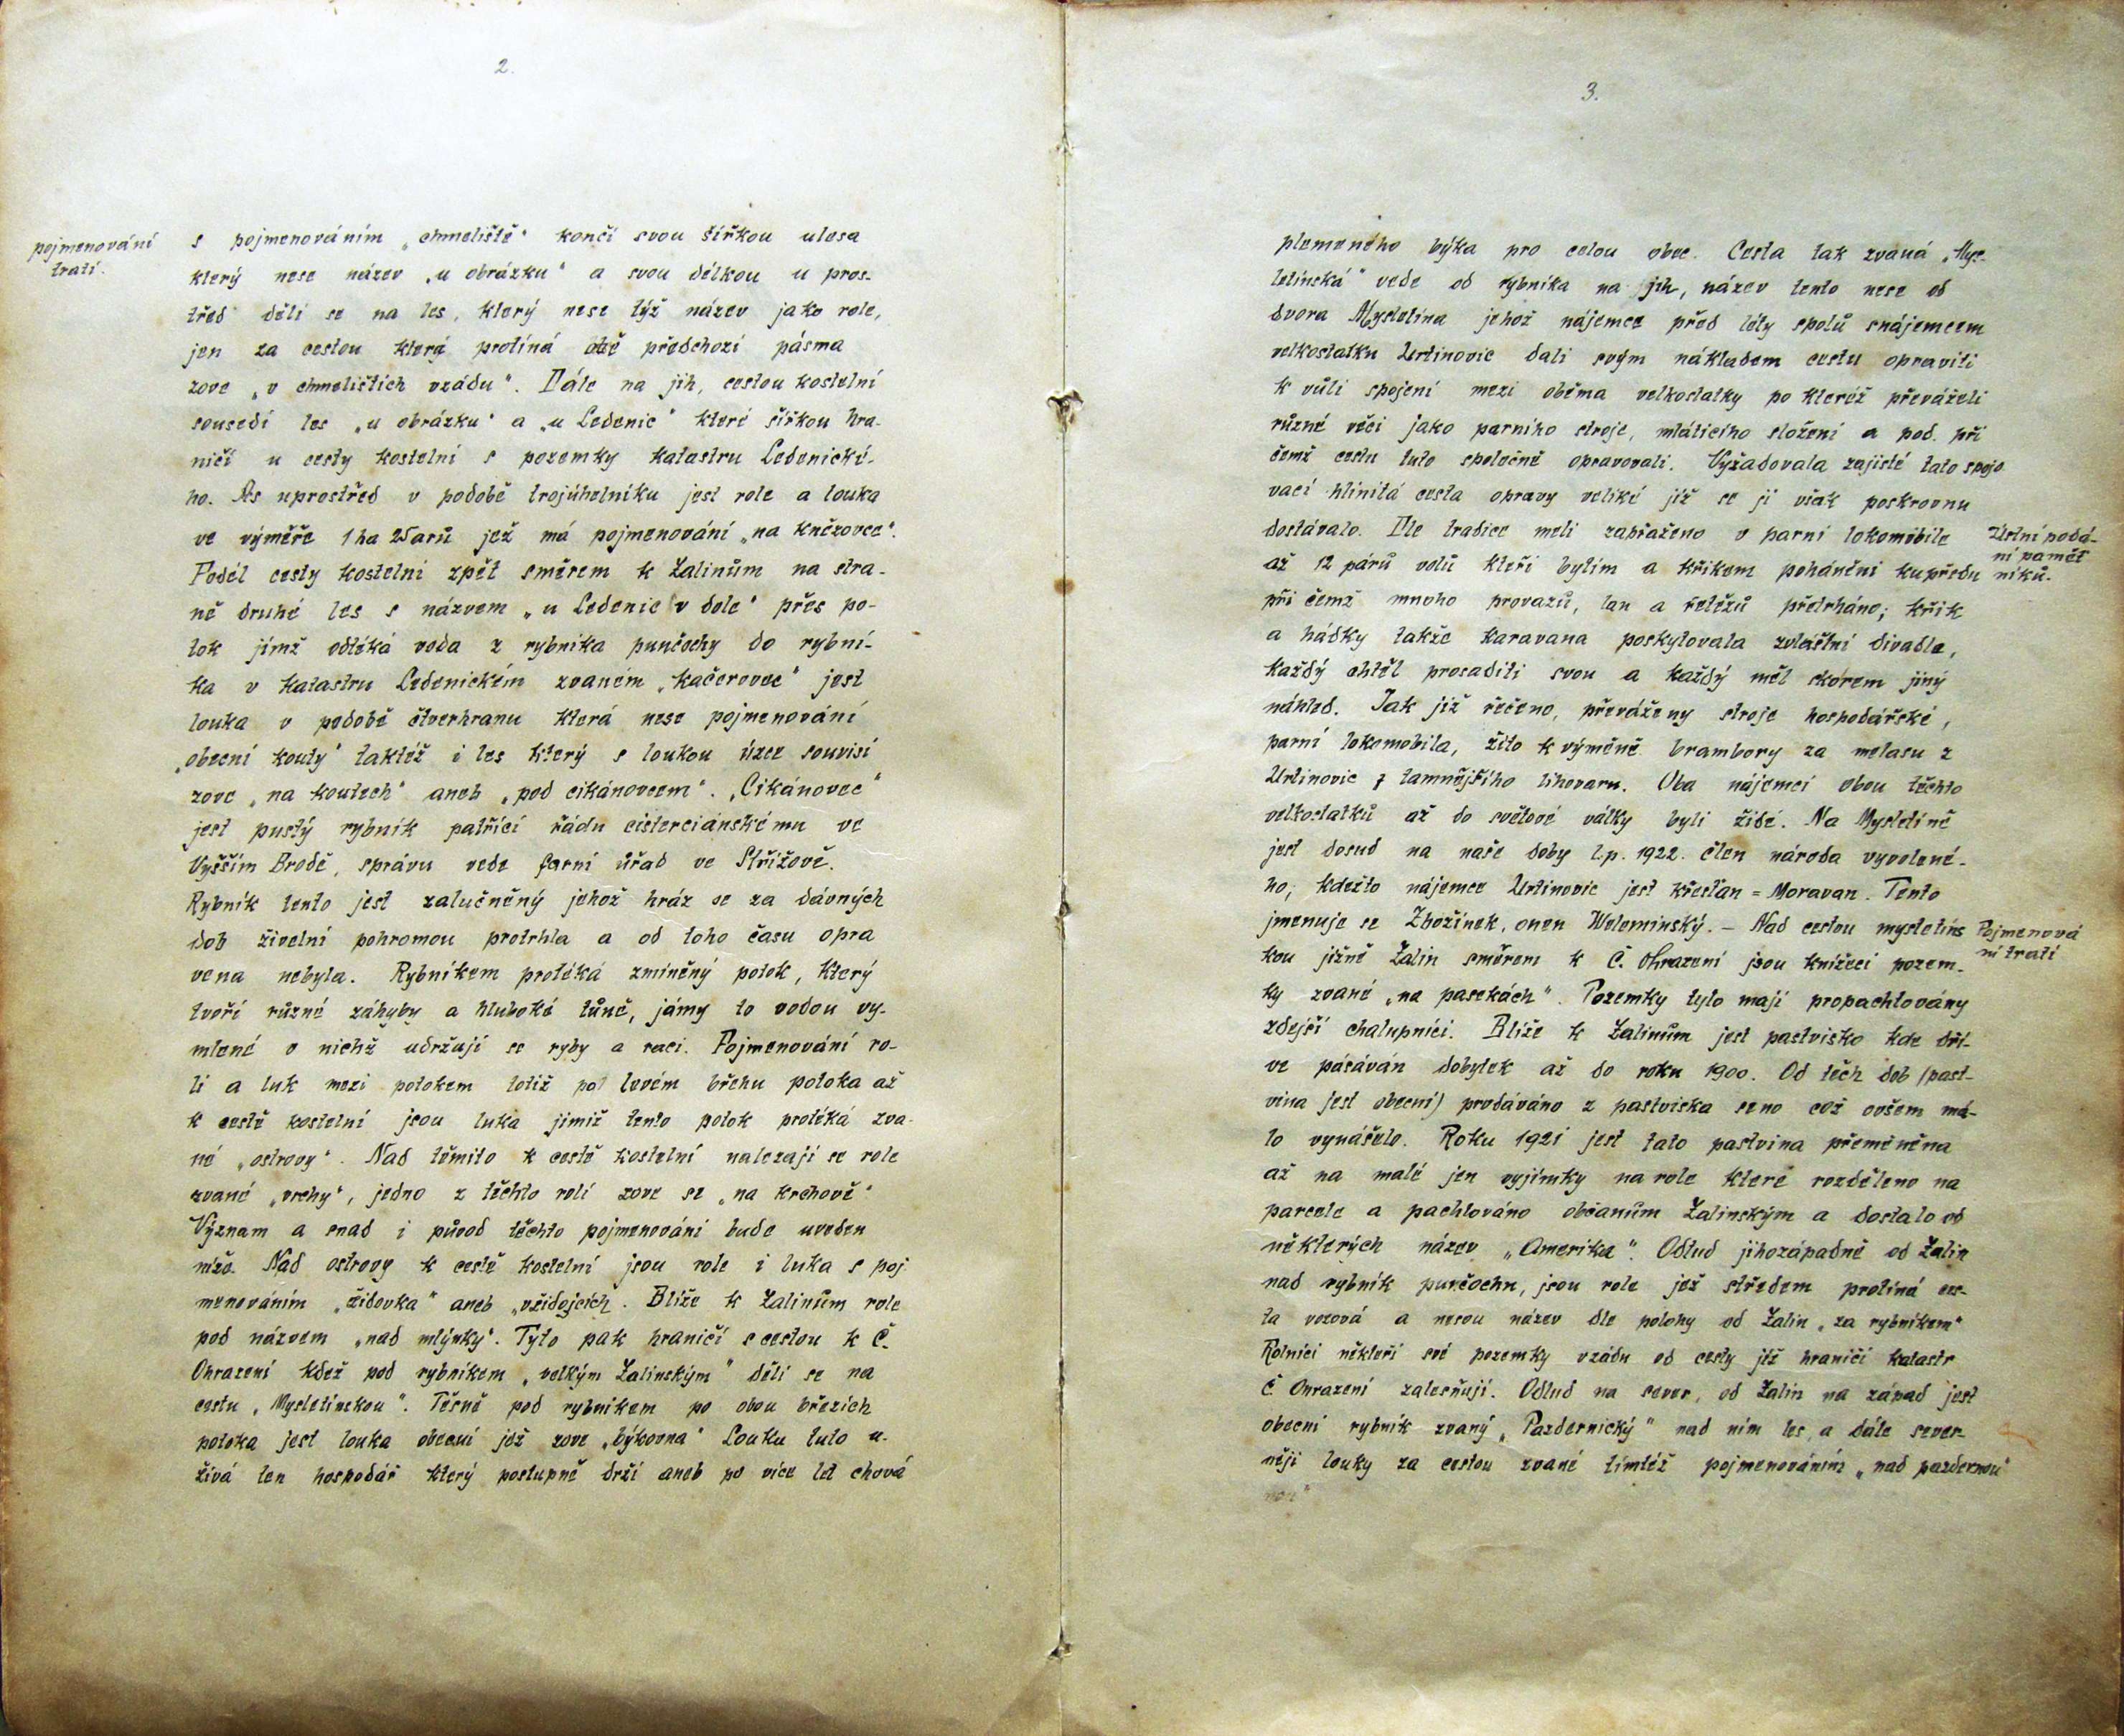 2.
pojmenování
tratí.
s pojmenováním „chmeliště“ končí svou šířkou ulesa
který nese název „u obrázku“ a svou délkou u pros-
třed dělí se na les, který nese týž název jako role,
jen za cestou která protíná obě předchozí pásma
zove „v chmelištích vzádu“. Dále na jih, cestou kostelní
sousedí les „u obrázku“ a „u Ledenic“ které šířkou hra-
ničí u cesty kostelní s pozemky katastru Ledenické-
ho. As uprostřed v podobě trojúhelníku jest role a louka
ve výměře 1 ha 25arů jež má pojmenování „na kněžovce“.
Podél cesty kostelní zpět směrem k Zalinům na stra-
ně druhé les s názvem „u Ledenic v dole“ přes po-
tok jímž odtéká voda z rybníka punčochy do rybní-
ka v katastru Ledenickém zvaném „kačerovec“ jest
louka v podobě čtverhranu která nese pojmenování
„obecní kouty“ taktéž i les který s loukou úzce souvisí
zove „na koutech“ aneb „pod cikánovcem“. „Cikánovec“
jest pustý rybník patřící řádu cisterciánskému ve
Vyšším Brodě, správu vede farní úřad ve Střížově.
Rybník tento jest zalučněný jehož hráz se za dávných
dob živelní pohromou protrhla a od toho času opra
vena nebyla. Rybníkem protéká zmíněný potok, který
tvoří různé záhyby a hluboké tůně, jámy to vodou vy-
mlené v nichž udržují se ryby a raci. Pojmenování ro-
lí a luk mezi potokem totiž po levém břehu potoka až
k cestě kostelní jsou luka jimiž tento potok protéká zva-
né „ostrovy“. Nad těmito k cestě kostelní nalezají se role
zvané „vrchy“, jedno z těchto rolí zove se „na krchově“
Význam a snad i původ těchto pojmenování bude uveden
níže. Nad ostrovy k cestě kostelní jsou role i luka s poj
menováním „židovka“ aneb „vžidejcích. Blíže k Zalinům role
pod názvem „nad mlýnky“. Tyto pak hraničí s cestou k Č.
Ohrazení kdež pod rybníkem „velkým Zalinským“ dělí se na
cestu „Mysletínskou“. Těsně pod rybníkem po obou březích
potoka jest louka obecní jež zove „býkovna“ Louku tuto u-
žívá ten hospodář který postupně drží aneb po více let chová
3.
plemeného býka pro celou obec. Cesta tak zvaná „Mys-
letínská“ vede od rybníka na jih, název tento nese od
dvora Mysletína jehož nájemce před léty spolů snájemcem
velkostatku Urtinovic dali svým nákladem cestu opraviti
k vůli spojení mezi oběma velkostatky po kteréž převáželi
různé věci jako parního stroje, mláticího složení a pod. při
čemž cestu tuto společně opravovali. Vyžadovala zajisté tato spojo
vací hlinitá cesta opravy veliké jíž se jí však poskrovnu
dostávalo. Dle tradice meli zapřaženo v parní lokomobile
až 12 párů volů kteří bytím a křikem poháněni kupředu
při čemž mnoho provazů, lan a řetězů přetrháno; křik
a hádky takže karavana poskytovala zvláštní divadlo,
každý chtěl prosaditi svou a každý měl skorem jiný
náhled. Jak již řečeno, převáženy stroje hospodářské,
parní lokomobila, žito k výměně brambory za melasu z
Urtinovic z tamnějšího lihovaru. Oba nájemci obou těchto
velkostatků až do světové války byli židé. Na Mysletíně
jest dosud na naše doby l.p. 1922. člen národa vyvolené-
ho, kdežto nájemce Urtinovic jest křesťan = Moravan. Tento
jmenuje se Zbožínek, onen Weleminský. – Nad cestou mysletíns
kou jižně Zalin směrem k Č. Ohrazení jsou knížecí pozem-
ky zvané „na pasekách“. Pozemky tyto mají propachtovány
zdejší chalupníci. Blíže k Zalinům jest pastvisko kde dří-
ve pásáván dobytek až do roku 1900. Od těch dob (past-
vina jest obecní) prodáváno z pastviska seno což ovšem má-
lo vynášelo. Roku 1921 jest tato pastvina přeměněna
až na malé jen vyjímky na role které rozděleno na
parcele a pachtováno občanům Zalinským a dostalo od
některých název „Amerika“. Odtud jihozápadně od Zalin
nad rybník punčochu, jsou role jež středem protíná ces-
ta vozová a nesou název dle polohy od Zalin „za rybníkem“
Rolníci někteří své pozemky vzádu od cesty jíž hraničí katastr
Č. Ohrazení zalesňují. Odtud na sever, od Zalin na západ jest
obecní rybník zvaný „Pazdernický“ nad ním les, a dále sever-
něji louky za cestou zvané tímtéž pojmenováním „nad pazdernou“
nou“
Ústní podá-
ní pamět
níků.
Pojmenová
ní tratí